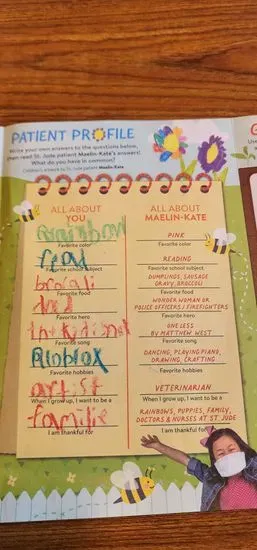 PATIENT PROFILE
Write your own answers to the questions below,
then read St. Jude patient Maelin-Kate's answers!
What do you have in common?
Children's artwork by St. Jude patient Maelin-Kate
ALL ABOUT
YOU
Rainbow
Favorite color
read
Favorite school subject
brocali
Favorite food
dad
Favorite hero
Favorite song
Roblox
Favorite hobbies
artist
When I grow up, I want to be a
familie
I am thankful for
ALL ABOUT
MAELIN-KATE
PINK
Favorite color
READING
Favorite school subject
DUMPLINGS, SAUSAGE
GRAVY, BROCCOLI
Favorite food
WONDER WOMAN OR
POLICE OFFICERS / FIREFIGHTERS
Favorite hero
ONE LESS
BY MATTHEW WEST
Favorite song
DANCING, PLAYING PIANO,
DRAWING, CRAFTING
Favorite hobbies
VETERINARIAN
When I grow up, I want to be a
RAINBOWS, PUPPIES, FAMILY,
DOCTORS & NURSES AT ST. JUDE
I am thankful for